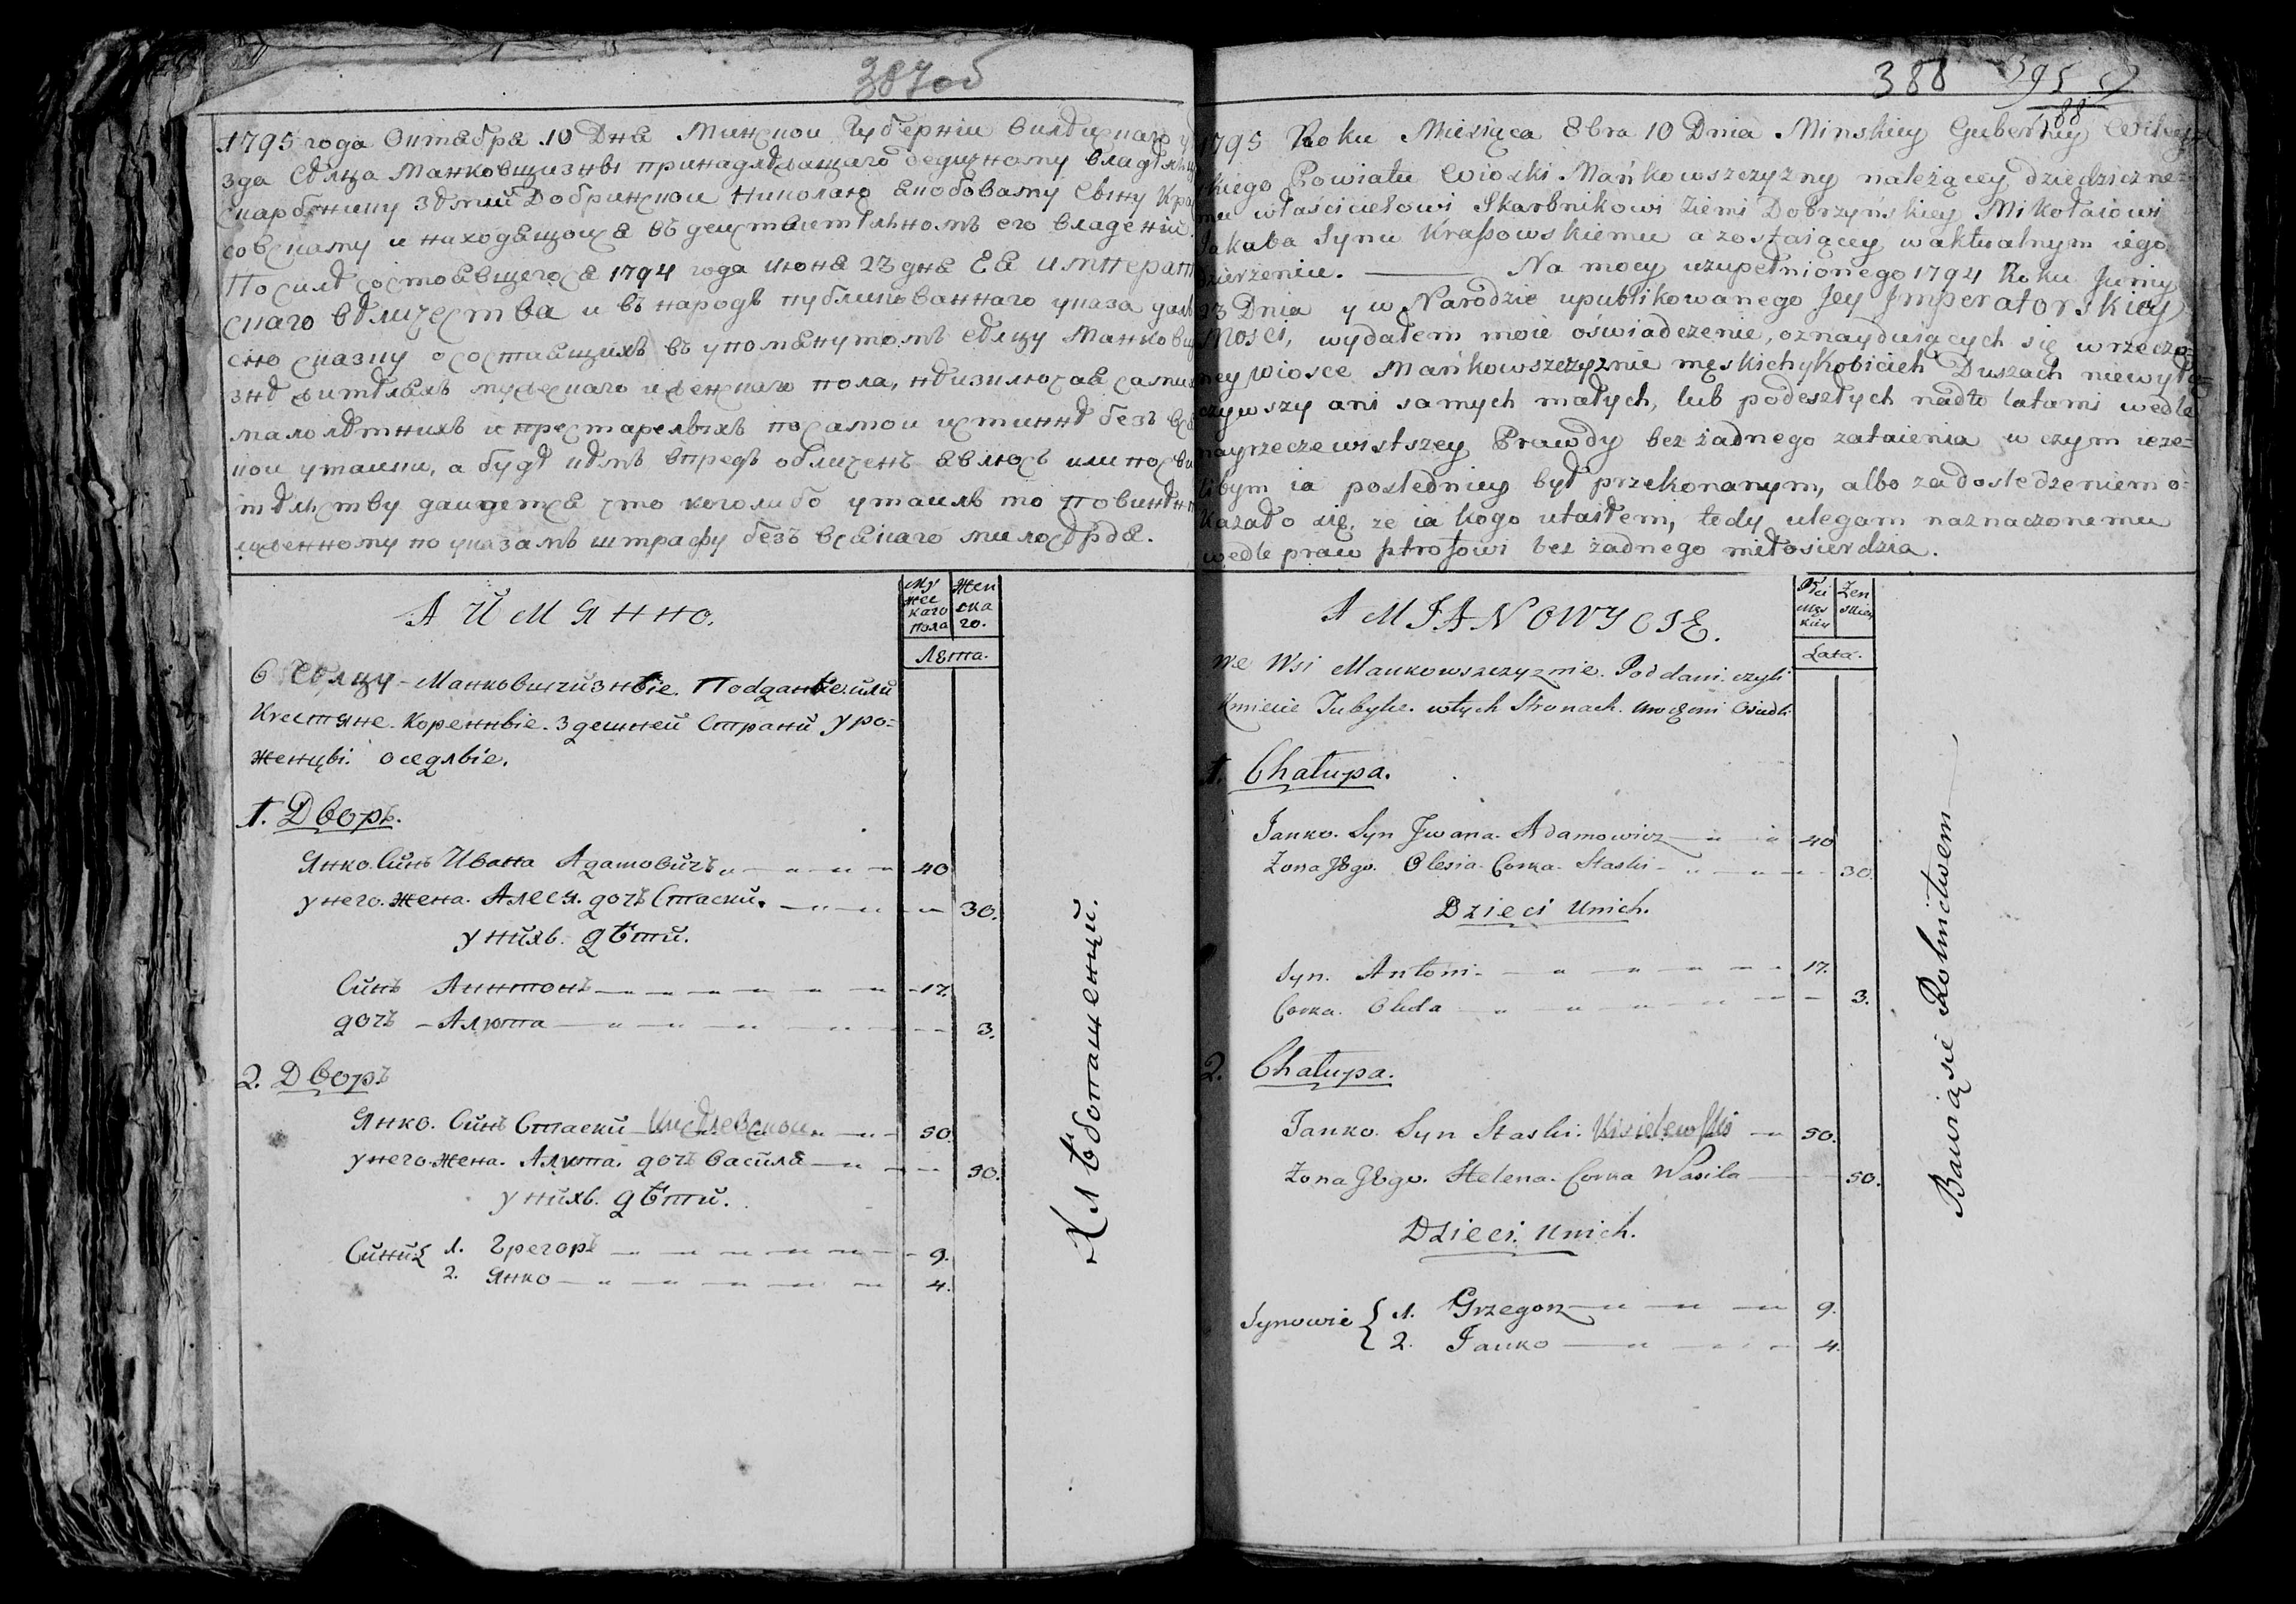 387об
1795 года Октября 10 Дня Минской Губерніи Вилейскаго у
зда селца Манковщизны принадлежащаго дедичному владелцу
скарбнику земли Добринской Николаю Якобовому сыну Кра
совскому и находящоися въ действителномъ его владении.
По силе состоявщегося 1794 года июня 23 дня Ея императ
скаго величества и въ народъ публикованнаго указа даю
сию сказку о состоящихъ въ упомянутомъ селцу Манковщ
зне жителяхъ мужескаго и женскаго пола, неизилючая самых
малолетнихъ и престарелыхъ по самои истинне безъ вся
кои утайки, а буде кемъ впредь обличенъ явлюсь или по сви
телству дайдется что коголибо утаилъ то повинен
щенному по указамъ штрафу безъ всякаго милосердя.
А ИМЯННО.
Му жес каго пола
Жен ска го.
Лета.
В селцу Манковщизные. Подданые или
Крестяне. Коренные. Здешней Страни уро=
женцы. оседлые.
1. Дворъ.
Янко. Синъ Ивана Адамовичъ 40
у него. жена. Алеся. дочъ Стаски. 30.
у нихъ. дети.
Синъ Аннтонъ 17.
дочъ Алюта 3.
2. Дворъ
Янко. Синъ Стаски Киселевской 50.
у него жена. Алюта. дочъ Василя 50.
у нихъ. дети.
Сини 1. Грегоръ 9.
2. Янко 4.
Хлеботащенци.
388 395
88
1795 Roku Miesiąca 8bra 10 Dnia Minskiey Guberniy Wileys
kiego Powiatu Wioski Mańkowszczyzny należącey dziedziczne=
mu właścicielowi Skarbnikowi Ziemi Dobrzyńskiey Mikołaiowi
Jakuba Synu Kraſsowskiemu a zostaiącey w aktualnym iego
dzierżeniu. Na mocy uzupełnionego 1794 Roku Juniy
23 Dnia y w Narodzie upublikowanego Jey Jmperatorskiey
Mości, wydałem moie oświadczenie, oznayduiących się w rzeczo=
ney wiosce Mańkowszczyznie męskich y Kobicich Duszach niewyłą=
czywszy ani samych małych, lub podeszłych nadto latami wedle
nayrzeczewistszey Prawdy bez żadnego zataienia w czym ieże=
libym ia poslednicy był przekonanym, albo za dosledzeniem o=
kazało się, że ia kogo utaiłem, tedy ulegam naznaczonemu
wedle praw sztrofowi bez żadnego miłosierdzia.
A MIANOWYCIE.
Płci Męs kiey
Żen skiey
Lata.
We Wsi Mankowszczyznie. Poddani. czyli
Kmiecie Tubylce. w tych Stronach. Urodzeni Osiedli
1. Chałupa.
Janko. Syn Jwana. Adamowicz 40
Zona Jego. Olesia. Corka. Staski 30.
Dzieci Unich.
Syn. Antoni 17.
Corka. Oluta 3.
2. Chałupa.
Janko. Syn Staski. Kisielewski 50.
Zona Jego. Helena. Corka Wasila 50.
Dzieci. Unich.
Synowie 1. Grzegorz 9.
2. Janko 4.
Bawią sie Rolnictwem